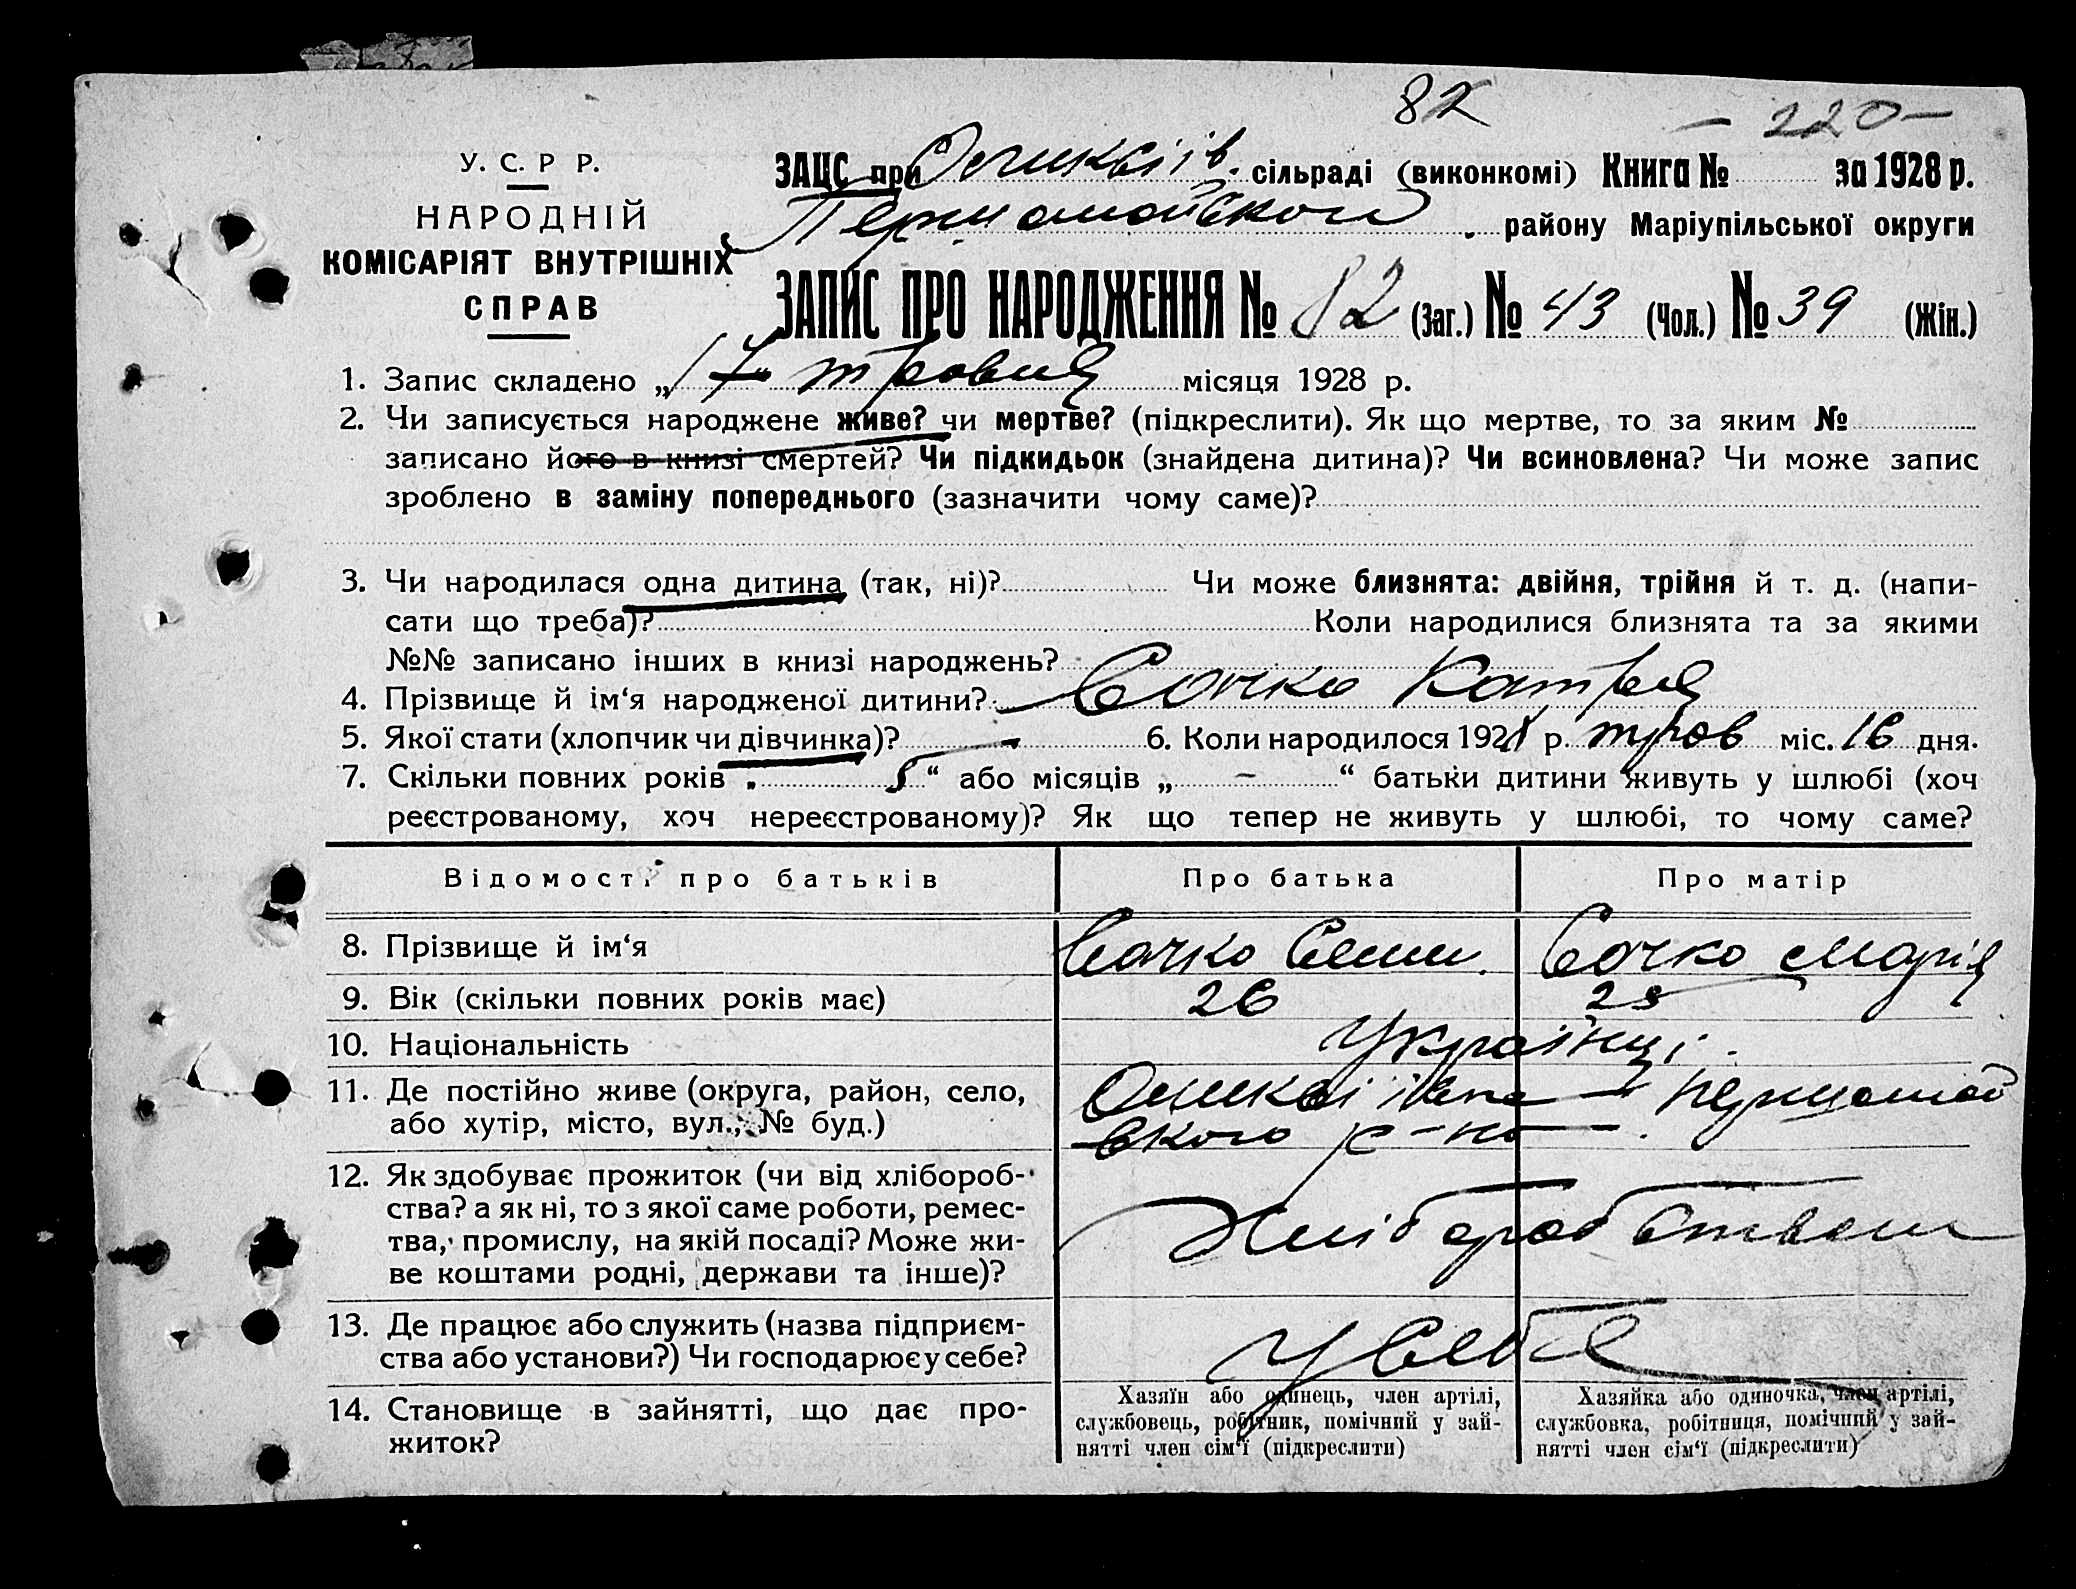 82
— 220 —
У. С. Р Р.
ЗАЦС при Олексіїв. сільраді (виконкомі) Книга № за 1928 р.
НАРОДНІЙ
Першомайської району Маріупільської округи
КОМІСАРІЯТ ВНУТРІШНІХ
СПРАВ
ЗАПИС ПРО НАРОДЖЕННЯ № 82 (Заг.) № 43 (Чол.) № 39 (Жін.)
1. Запис складено „17“ травня місяця 1928 р.
2. Чи записується народжене живе? чи мертве? (підкреслити). Як що мертве, то за яким №
записано його в книзі смертей? Чи підкидьок (знайдена дитина)? Чи всиновлена? Чи може запис
зроблено в заміну попереднього (зазначити чому саме)?
3. Чи народилася одна дитина (так, ні)? Чи може близнята: двійня, трійня й т. д. (напи-
сати що треба)? Коли народилися близнята та за якими
№№ записано інших в книзі народжень?
4. Прізвище й ім‘я народженої дитини? Сочко Катря
5. Якої стати (хлопчик чи дівчинка)? 6. Коли народилося 1928 р. трав міс. 16 дня.
7. Скільки повних років „ 5 “ або місяців „ – “ батьки дитини живуть у шлюбі (хоч
реєстрованому, хоч нереєстрованому)? Як що тепер не живуть у шлюбі, то чому саме?
Відомості про батьків Про батька Про матір
8. Прізвище й ім‘я Сочко Семен. Сочко Марія
9. Вік (скільки повних років має) 26 25
10. Національність Українці.
11. Де постійно живе (округа, район, село, Олексіївка — Першомай
або хутір, місто, вул., № буд.) ського р-на —.
12. Як здобуває прожиток (чи від хлібороб-
ства? а як ні, то з якої саме роботи, ремес- Хліборобством
тва, промислу, на якій посаді? Може жи-
ве коштами родні, держави та інше)?
13. Де працює або служить (назва підприєм- У себе
ства або установи?) Чи господарює у себе?
14. Становище в зайнятті, що дає про-
житок?
Хазяїн або одинець, член артілі,
службовець, робітник, помічний у зай-
нятті член сім‘ї (підкреслити)
Хазяйка або одиночка, член артілі,
службовка, робітниця, помічний у зай-
нятті член сім‘ї (підкреслити)